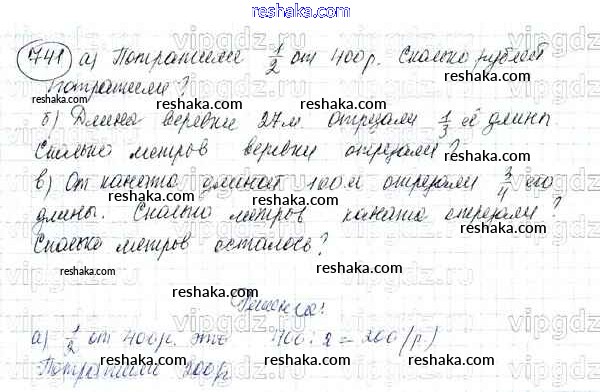 reshaka.com
741 а) Потратили 1/2 от 400р. Сколько рублей
потратили?
reshaka.com reshaka.com
б) Длина веревки 27м отрезали 1/3 её длины
reshaka.com
Сколько метров веревки отрезали?
reshaka.com reshaka.com
в) От каната длиной 100м отрезали 3/4 его
reshaka.com
длины. Сколько метров каната отрезали?
reshaka.com
Сколько метров осталось?
reshaka.com reshaka.com
Решение:
reshaka.com
а) 1/2 от 400р. это 400:2=200(р.)
Потратили 200р
reshaka.com reshaka.com